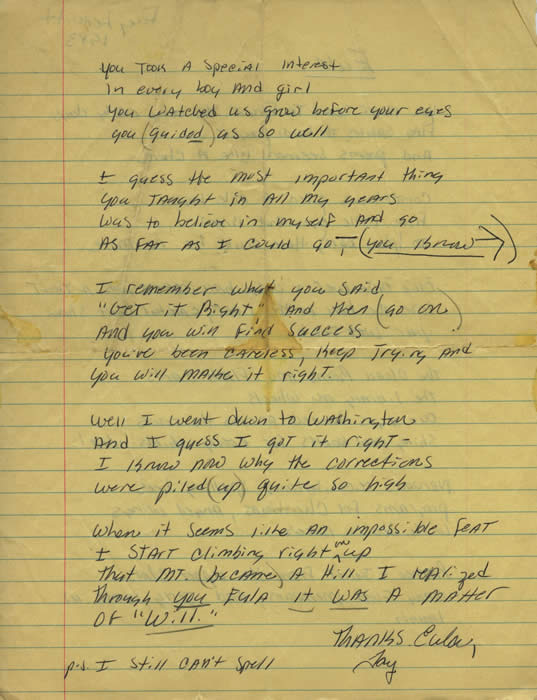 You Took A Special Interest
In every boy And girl
You watched us grow before your eyes
you (guided) us so well
I guess the most important thing
You Taught in All my years
Was to believe in myself And go
As Far As I Could go, - (you know →)
I remember what you said
"Get it Right" And then (go on)
And you will find success
You've been careless, Keep Trying And
You will make it right.
Well I went down to Washington
And I guess I got it right -
I know now why the corrections
were piled (up) quite so high
When it seems like An impossible Feat
I START climbing right on up
That MT. (became) A Hill I realized
Through you Eula it was A matter
Of "Will."
THANKS Eula,
p.s. I still can't spell